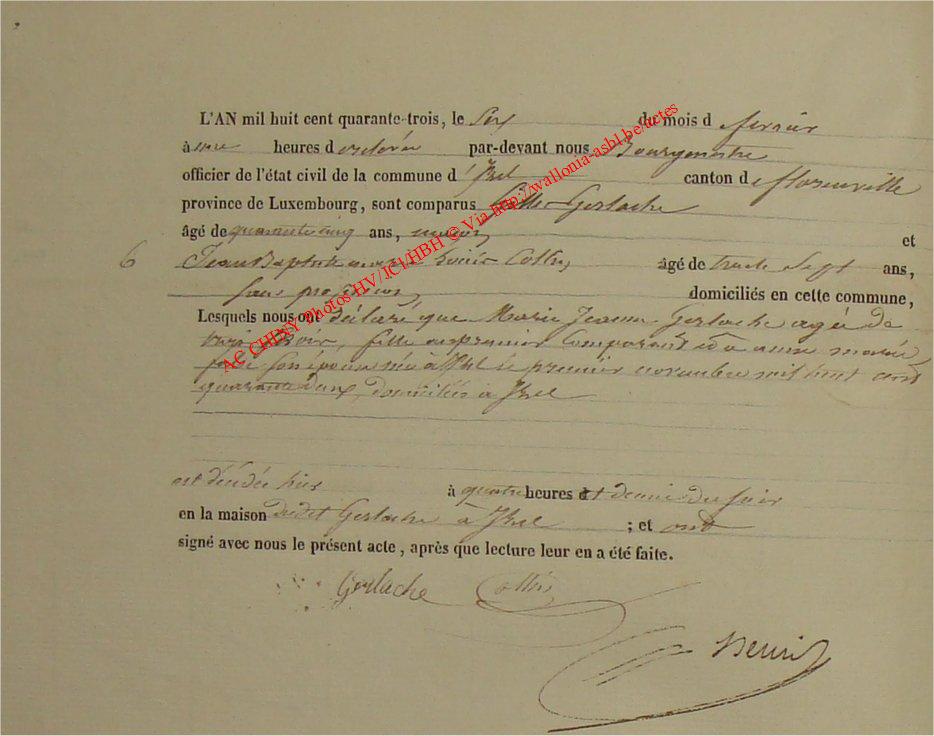 L'AN mil huit cent quarante-trois, le Six du mois d fevrier
à une heures d relevée par-devant nous Bourgmestre
officier de l'état civil de la commune d' Izel canton d e florenville
province de Luxembourg, sont comparus Gerlache
âgé de quarante cinq ans, et
6 Jean Baptiste Collin âgé de trente Sept ans,
Sans profession, domiciliés en cette commune,
Lesquels nous ont déclaré que Marie Jeanne Gerlache agée de
trois mois, fille du premier Comparant et d'anne marie
Son épouse née à Izel le premier novembre mil huit cent
quarante deux, domiciliés à Izel
est décédée hier à quatre heures et demie du Soir
en la maison dudit Gerlache à Izel ; et ont
signé avec nous le présent acte, après que lecture leur en a été faite.
Gerlache Collin
Henri
AC CHINY Photos HV/JC1/HBH © Via http://wallonia-asbl.be/actes